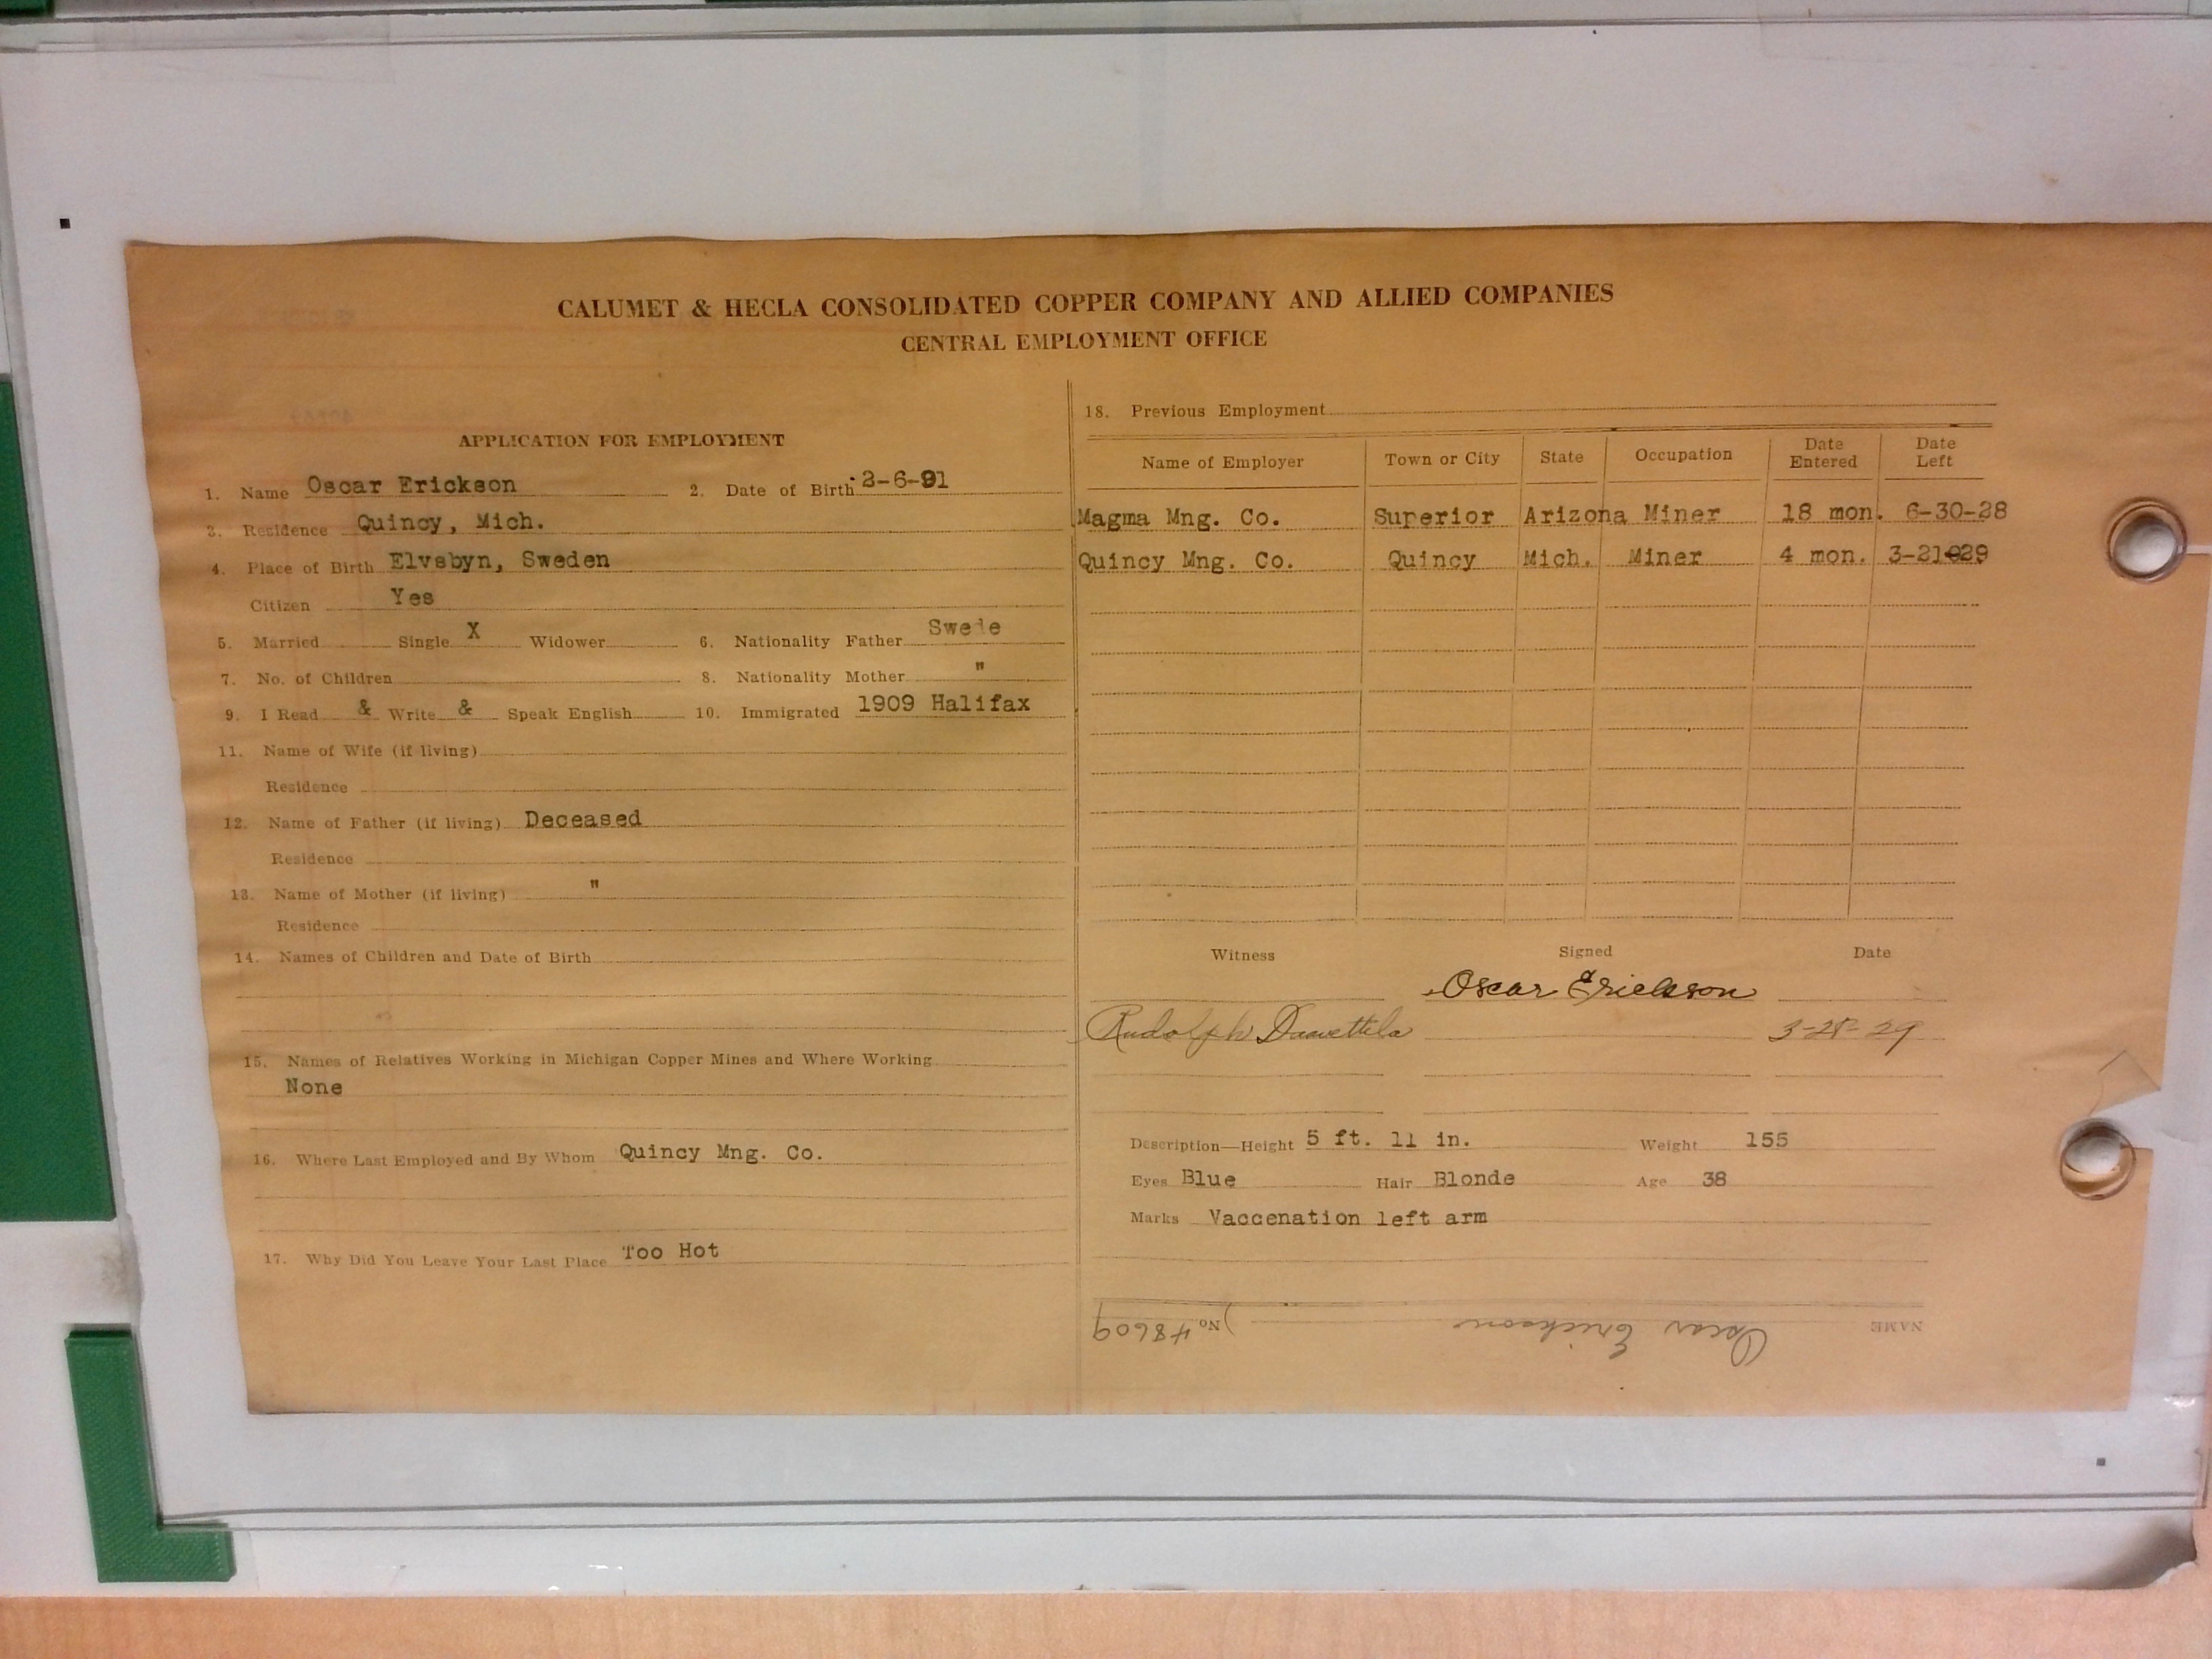 CALUMET & HECLA CONSOLIDATED COPPER COMPANY AND ALLIED COMPANIES
CENTRAL EMPLOYMENT OFFICE
APPLICATION FOR EMPLOYMENT
1. Name Oscar Erickson 2. Date of Birth 2-6-91
3. Residence Quincy, Mich.
4. Place of Birth Elvsbyn, Sweden
Citizen Yes
5. Married Single X Widower 6. Nationality Father Swede
7. No. of Children 8. Nationality Mother "
9. I Read & Write & Speak English 10. Immigrated 1909 Halifax
11. Name of Wife (if living)
Residence
12. Name of Father (if living) Deceased
Residence
13. Name of Mother (if living) "
Residence
14. Names of Children and Date of Birth
15. Names of Relatives Working in Michigan Copper Mines and Where Working
None
16. Where Last Employed and By Whom Quincy Mng. Co.
17. Why Did You Leave Your Last Place Too Hot
18. Previous Employment
Name of Employer Town or City State Occupation Date Entered Date Left
Magma Mng. Co. Superior Arizona Miner 18 mon. 6-30-28
Quincy Mng. Co. Quincy Mich. Miner 4 mon. 3-21-29
Witness Signed Date
Oscar Erickson
Rudolph 3-28-29
Description—Height 5 ft. 11 in. Weight 155
Eyes Blue Hair Blonde Age 38
Marks Vaccenation left arm
NAME Oscar Erickson No. 48609